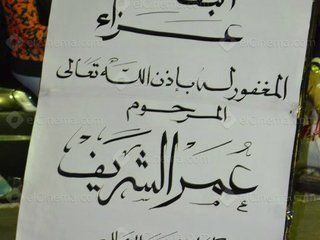 البقاء
عزاء
المغفور له بإذن الله تعالى
المرحوم
عمر الشريف
elCinema.com